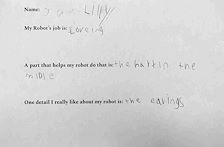 Name:
My Robot's job is:
A part that helps my robot do that is: the hart in the
midle
One detail I really like about my robot is: the earings